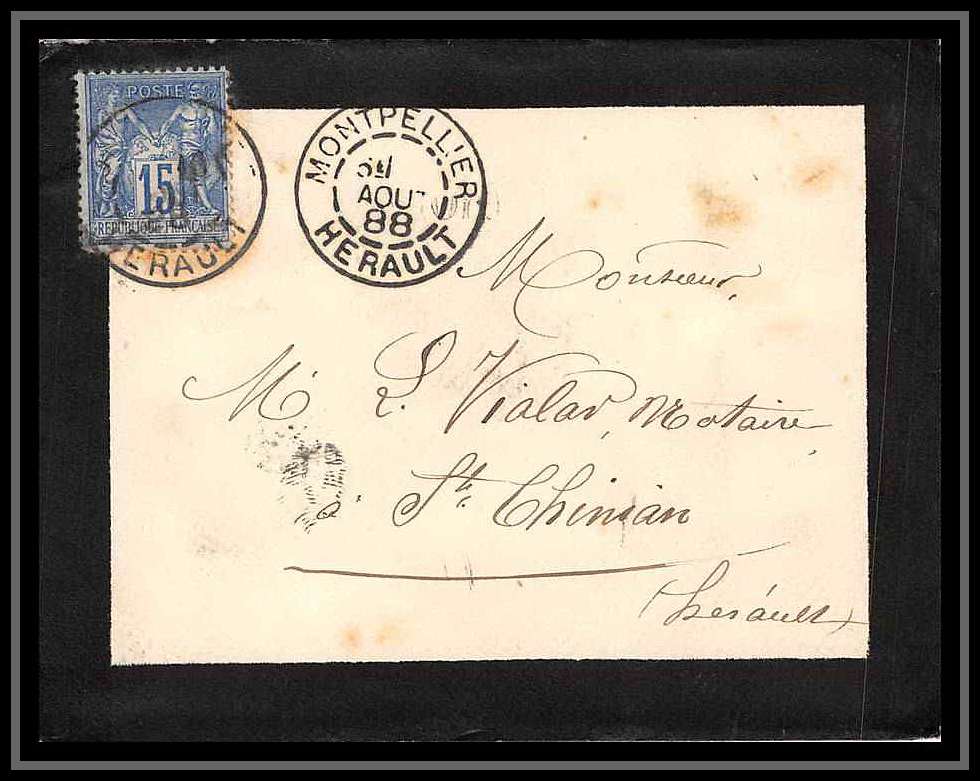 POSTE
15
REPUBLIQUE FRANÇAISE
HERAULT
MONTPELLIER
AOUT
88
HERAULT
Monsieur,
Mr L. Vialar, Notaire
à St Chinian
(herault)